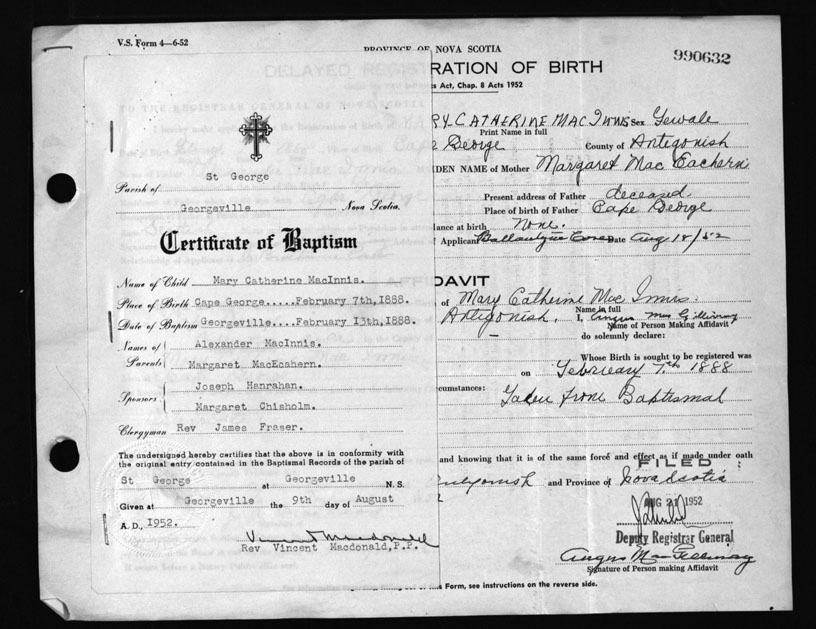 V.S. Form 4—6-52
PROVINCE OF NOVA SCOTIA
990632
DELAYED REGIST
RATION OF BIRTH
Act, Chap. 8 Acts 1952
RY CATHERINE MAC INNIS Sex Female
Print Name in full
George County of Antigonish
DEN NAME of Mother Margaret Mac Eachern
Present address of Father deceased
Place of birth of Father Cape George
ance at birth None.
Applicant Ballantyne Cove Date Aug 18/52
St George
Parish of
Georgeville Nova Scotia.
Certificate of Baptism
Name of Child Mary Catherine MacInnis.
Place of Birth Cape George.....February 7th,1888.
Date of Baptism Georgeville....February 13th,1888.
Names of Parents
Alexander MacInnis.
Margaret MacEcahern.
Sponsors
Joseph Hanrahan.
Margaret Chisholm.
Clergyman Rev James Fraser.
The undersigned hereby certifies that the above is in conformity with
the original entry contained in the Baptismal Records of the parish of
St George at Georgeville N. S.
Given at Georgeville the 9th day of August
A. D., 1952.
Vincent Macdonald
Rev Vincent Macdonald,P.P.
DAVIT
of Mary Catherine Mac Innis
Name in full
Antigonish. I, Angus Mac Gillivray
Name of Person Making Affidavit
do solemnly declare:
Whose Birth is sought to be registered was
on February 7th 1888
cumstances: Taken from Baptismal
and knowing that it is of the same force and effect as if made under oath
FILED
and Province of Nova Scotia
AUG 2 1952
Deputy Registrar General
Angus MacGillivray
Signature of Person making Affidavit
of this Form, see instructions on the reverse side.